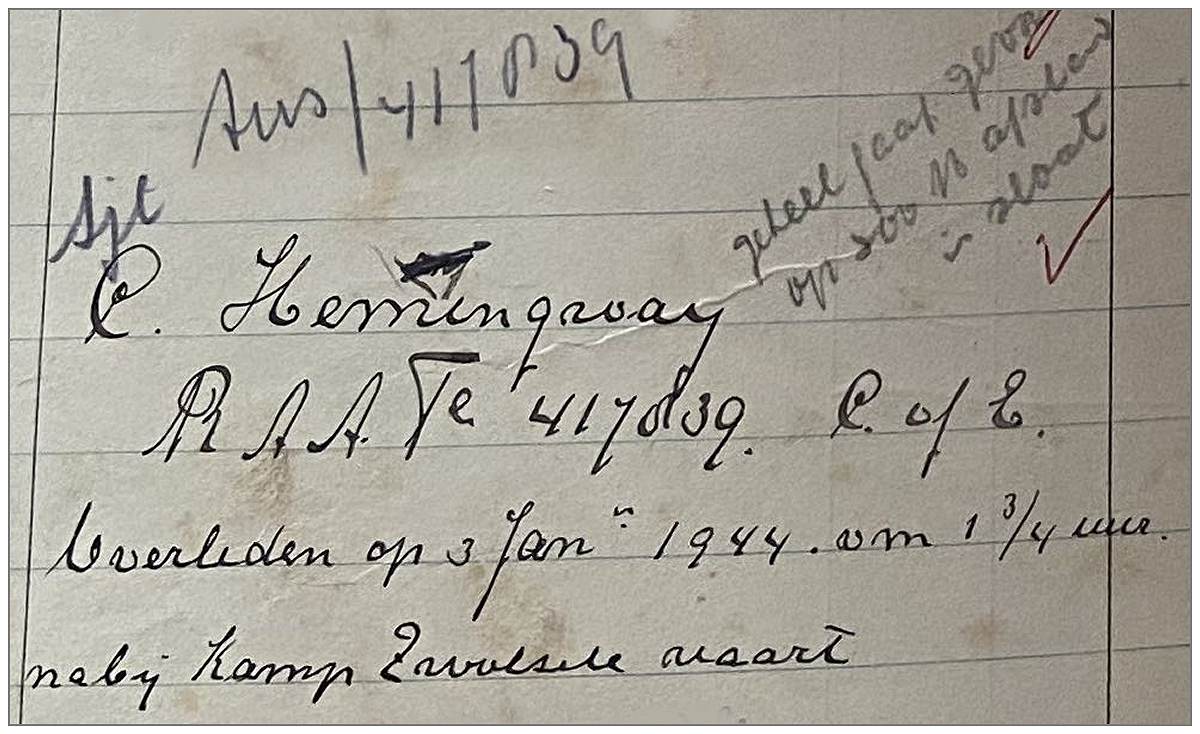 Aus/417839
geheel gaaf gevon
op 200 M afstand
in sloot
Sjt
C. Hemingway
R A A. Fe 417839. C. of E.
Overleden op 3 Jan" 1944. om 1 3/4 uur.
nabij Kamp Zwolsche vaart